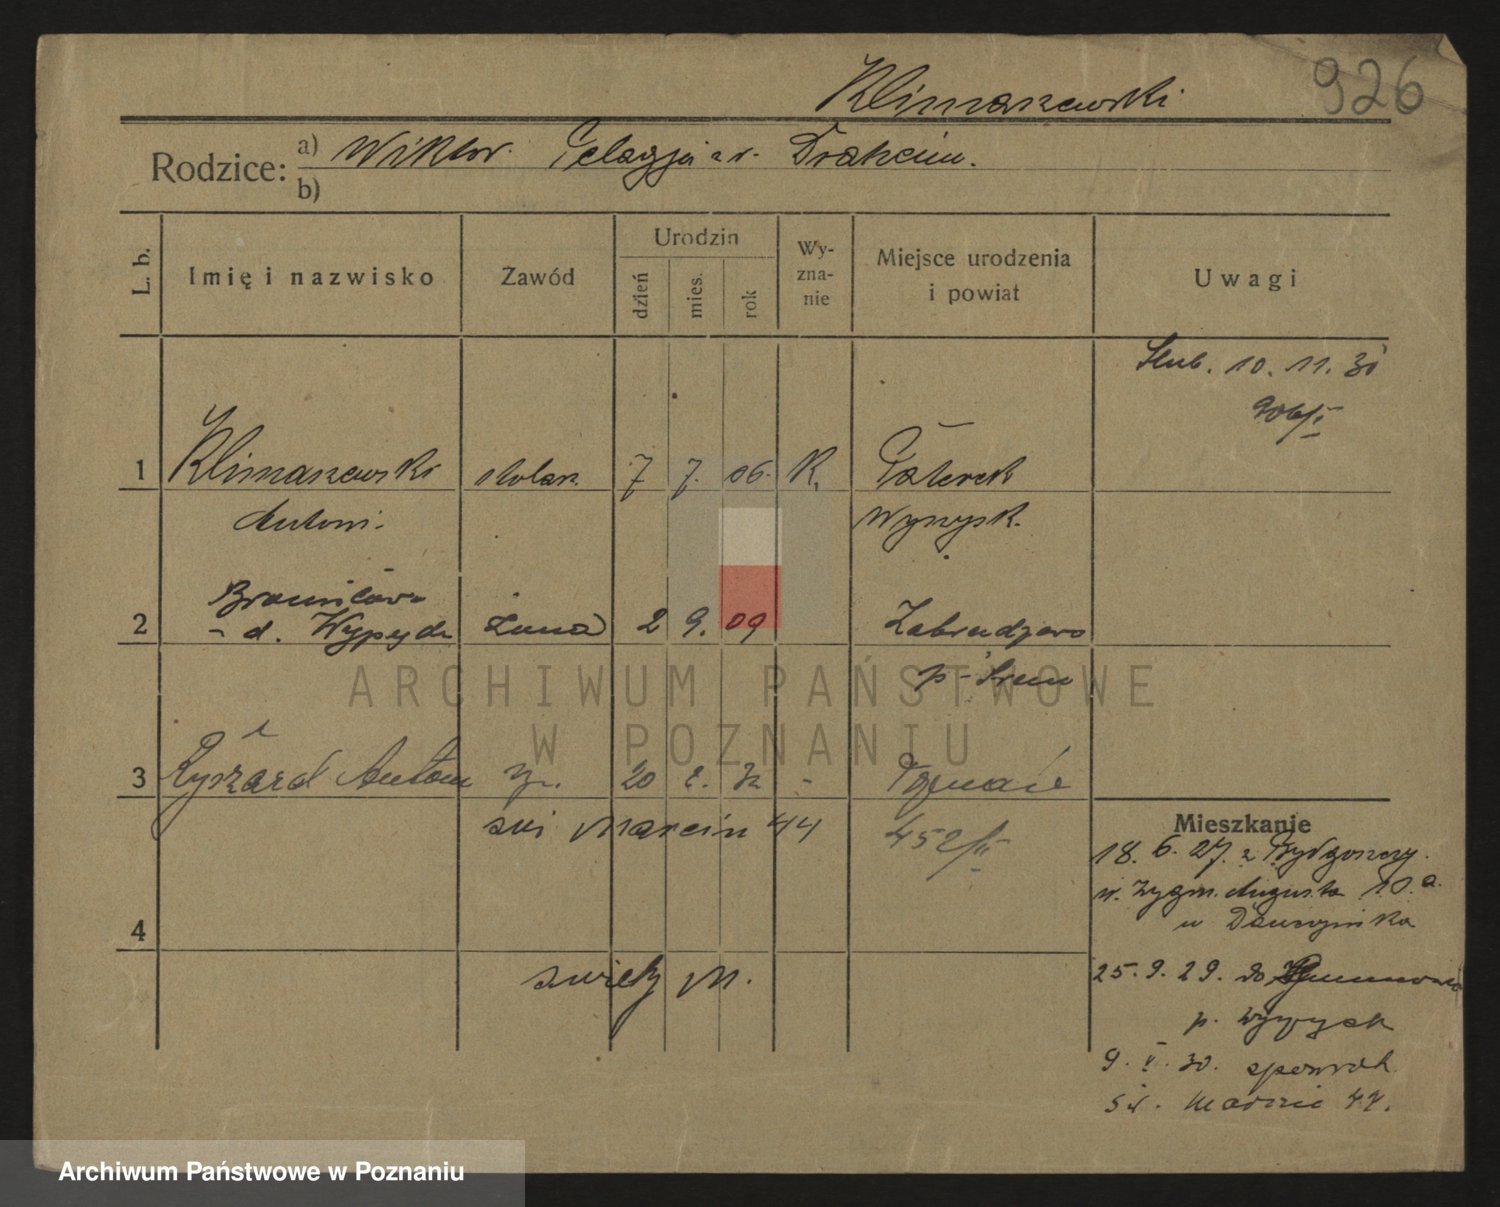 926
Klimaszewski
Rodzice:
a) Wiktor. Pelagja z d.
b)
L. b.
Imię i nazwisko
Zawód
Urodzin
dzień
mies.
rok
Wy-
zna-
nie
Miejsce urodzenia
i powiat
Uwagi
Ślub. 10. 11. 31
906/I
1 Klimaszewski stolarz 7 7. 06. K.
Antoni. Wyrzysk.
Bronisława
2 - d. żona 2 9. 09
p. Śrem
ARCHIWUM PAŃSTWOWE
W POZNANIU
3 Ryszard Antoni 20 32 - Poznań
św Marcin 44 452/II
Mieszkanie
18. 6. 27. z Bydgoszczy.
w. Zygm. Augusta 10. a.
u
4
święty M.
25. 9. 29. do
p. Wyrzysk
9. V. 30. spowrot.
św. Marcin 44.
Archiwum Państwowe w Poznaniu